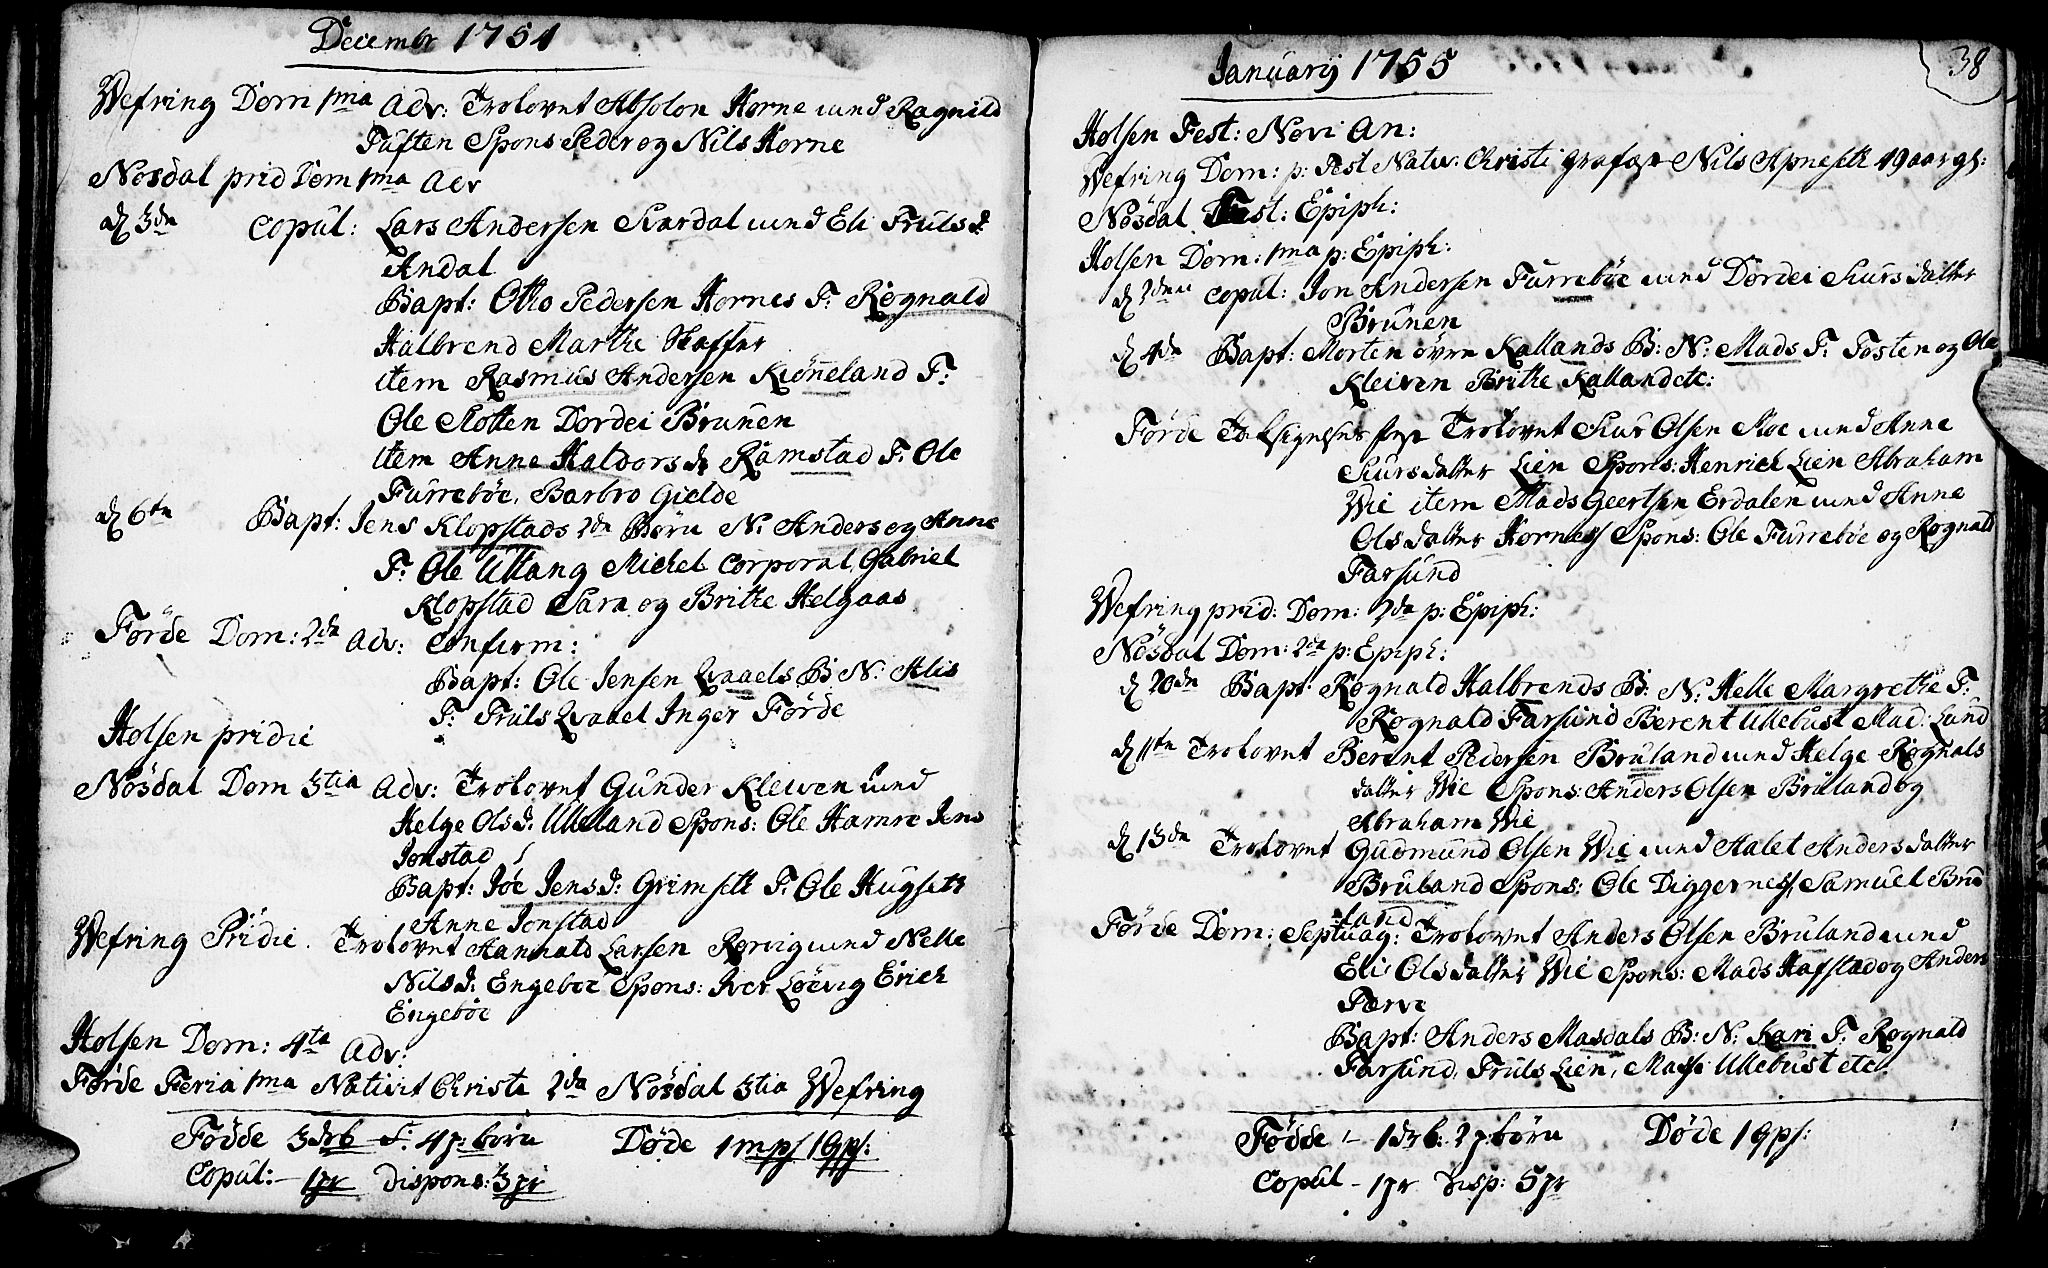 Decembr 1754
Wefring Dom 1ma Adv: Trolovet Absolon Horne und Ragnild
Tuften Spons Peder og Nils Horne
Nösdal prid Dom 1ma Adv
d 3de Copul: Lars Andersen Skardal und Eli Truls d:
Andal
Bapt: Otho Pedersen Hornes F: Rognald
Halbrend Marthe Staffer
item Rasmus Andersen Kiönneland F:
Ole Slotten Dordei Brunen
item Anne Haldors d: Ramstad F: Ole
Furreböe, Barbro Gielde
d 6te Bapt: Jens Klopstads 2de Börn N: Anders og Anne
F: Ole Ullang Michel Corporal, Gabriel
Klopstad Sara og Brithe Helgaas
Förde Dom: 2da Adv: Confirm:
Bapt: Ole Jensen Qvaaels B N: Alis
F: Truls Qvaael Inger Förde
Holsen pridie
Nösdal Dom 3tia Adv: Trolovet Gunder Kleiven und
Helge Ols d: Ulleland Spons: Ole Hamre Jens
Jonstad
Bapt: Jöe Jens d: Grimseth F: Ole Hugseth
Anne Jonstad
Wefring Pridie. Trolovet Hannald Larsen Rörvig und Nille
Nils d: Engeböe Spons: Iver Löevig Erich
Engeböe
Holsen Dom: 4ta Adv:
Förde Feria 1ma Nativit Christi 2da Nösdal 3tia Wefring
Födde 3 drb - S: 4 p: börn Döde 1 mps 1 qps:
Copul: - 1 pr Dispons: 3 pr
38
Januarij 1755
Holsen Fest: Novi An:
Wefring Dom: p: Fest Nativ: Christi grafæst Nils Apneseth 19 aar gl:
Nösdal Fest: Epiph:
Holsen Dom: 1ma p: Epiph:
d 2den Copul: Jon Andersen Furreböe und Dordei Siursdatter
Brunen
d 4de Bapt: Morten övre Kallands B: N: Mads F: Tosten og Ole
Kleiven Brithe Kalland etc:
Förde Trolovet Siur Olsen Moe und Anne
Siursdatter Lien Spons: Henrich Lien Abraham
Wie item Mads Geertsen Erdalen und Anne
Olsdatter Hornes Spons: Ole Furreböe og Rognald
Farsund
Wefring prid: Dom: 2da p: Epiph:
Nösdal Dom: 2da p: Epiph:
d 10de Bapt: Rognald Halbrends B: N: Helle Margrethe F:
Rognald Farsund Berent Ullebust Mad: Lund
d 11te Trolovet Berent Pedersen Bruland und Helge Rognals
datter Wie Spons: Anders Olsen Bruland og
Abraham Wie
d 13de Trolovet Gudmund Olsen Wie und Malet Andersdatter
Bruland Spons: Ole Diggernes Samuel Bru
land
Förde Dom: Septuag: Trolovet Anders Olsen Bruland und
Eli Olsdatter Wie Spons: Mads Hafstad og Anders
Farve
Bapt: Anders Masdals B: N: Kari F: Rognald
Farsund, Truls Lien, Massi Ullebust etc
Födde - 1 drb: 2 p: börn Döde 1 qps:
Copul - 1 pr Disp: 5 pr